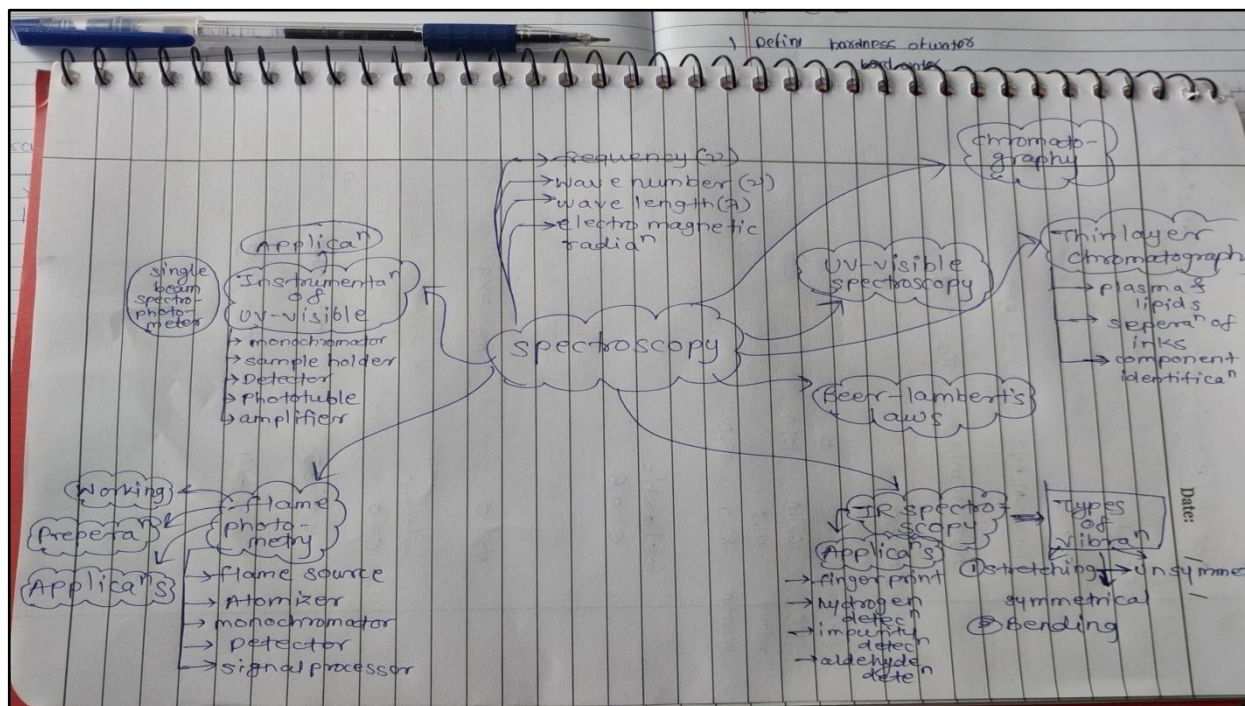 1) Define hardness of water
hard water
frequency (ν)
wave number (ν)
wave length (λ)
electro magnetic
radiaⁿ
chromato-
graphy
Thin layer
chromatograph
plasma &
lipids
seperaⁿ of
inks
component
identificaⁿ
UV-visible
spectroscopy
Applicaⁿ
single
beam
spectro-
photo-
meter
Instrumentaⁿ
of
UV-visible
monochromator
sample holder
Detector
phototuble
amplifier
spectroscopy
Beer-lambert's
laws
Working
Preperaⁿ
Applicaⁿs
flame
photo-
metry
flame source
Atomizer
monochromator
Detector
signal processor
IR spectro-
scopy
Applicaⁿs
finger print
hydrogen
detecⁿ
impurity
detecⁿ
aldehyde
deteⁿ
Types
of
vibraⁿ
① stretching → unsymme
symmetrical
② Bending
Date: / /